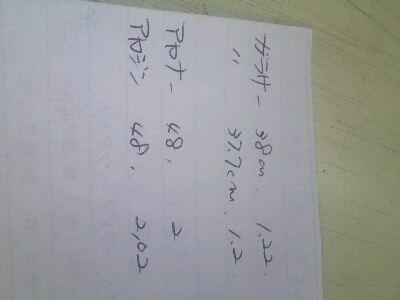 ガラサー 38cm. 1.22.
〃 37.7cm. 1.2.
アカナー 48, 2
アカジン 48, 2,02